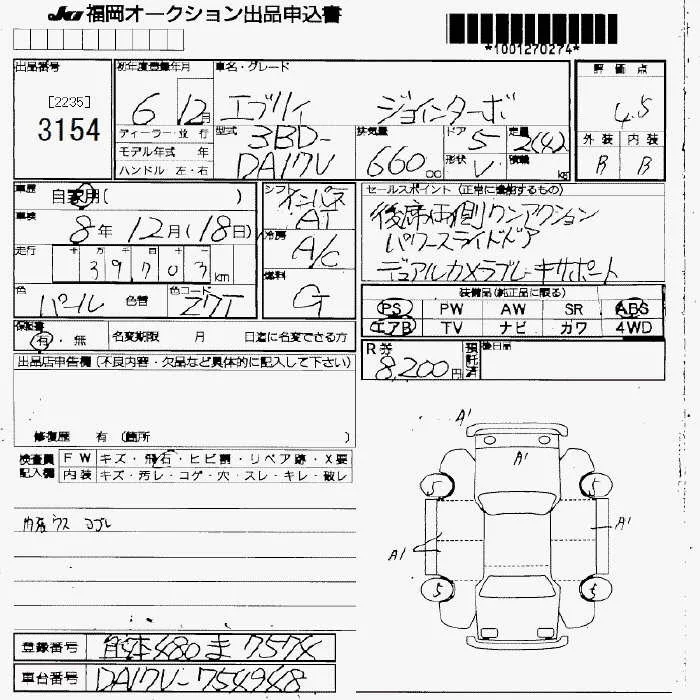 JU 福岡オークション出品申込書
*1001270274*
出品番号 [2235] 3154
初年度登録年月 6 12月
車名・グレード エブリィ ジョインターボ
評価点 4.5
外装 B 内装 B
ディーラー・並行
モデル年式 年
ハンドル 左・右
型式 3BD-DA17V
排気量 660 cc
ドア 5
形状 V
定員 2(4)人
積載 kg
車歴 自家用( )
車検 8年 12月(18日)
走行 十 万 千 百 十 一 39703 km
色 パール 色替 色コード Z7T
シフト インパネAT
冷房 A/C
燃料 G
セールスポイント (正常に機能するもの)
後席両側ワンアクション
パワースライドドア
デュアルカメラブレーキサポート
装備品(純正品に限る)
PS PW AW SR ABS
エアB TV ナビ カワ 4WD
保証書 有・無 名変期限 月 日迄に名変できる方
R券 8,200円 預託済 後日品
出品店申告欄(不良内容・欠品など具体的に記入して下さい)
修復歴 有 (箇所 )
検査員記入欄 FW キズ・飛石・ヒビ割・リペア跡・X要
内装 キズ・汚レ・コゲ・穴・スレ・キレ・破レ
内装ウス ヨゴレ
A1
A1
5 5
A1 A1
5 5
登録番号 熊本480ま757X
車台番号 DA17V-754948